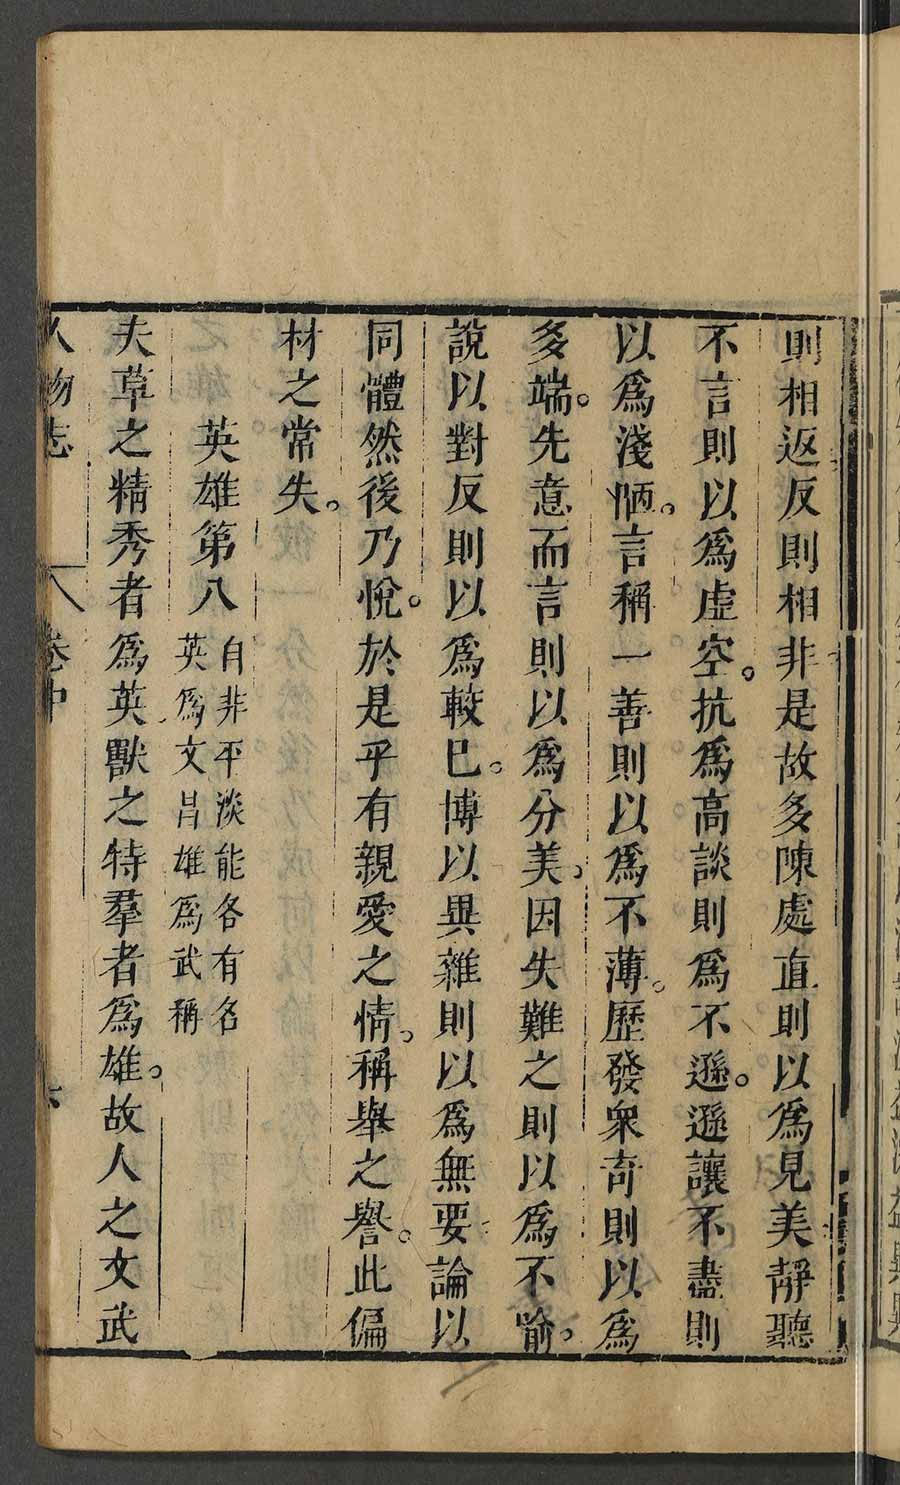 則相返反則相非是故多陳處直則以爲見美靜聽
不言則以爲虛空。抗爲高談則爲不遜。遜讓不盡則
以爲淺陋。言稱一善則以爲不薄。歷發衆奇則以爲
多端。先意而言則以爲分美。因失難之則以爲不喻。
說以對反則以爲較已。博以異雜則以爲無要論以
同體然後乃悅。於是乎有親愛之情。稱舉之譽。此偏
材之常失。
英雄第八
自非平淡能各有名
英爲文昌雄爲武稱
夫草之精秀者爲英獸之特羣者爲雄。故人之文武
人物志 卷中 六